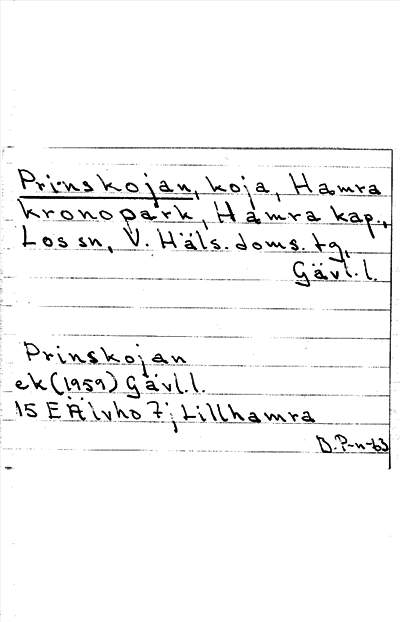 Prinskojan, koja, Hamra
kronopark, Hamra kap.,
Los sn, V. Häls. doms. tg,
Gävl.l.
Prinskojan
ek (1959) Gävl.l.
15 E Älvho 7; Lillhamra
B. P-n-63